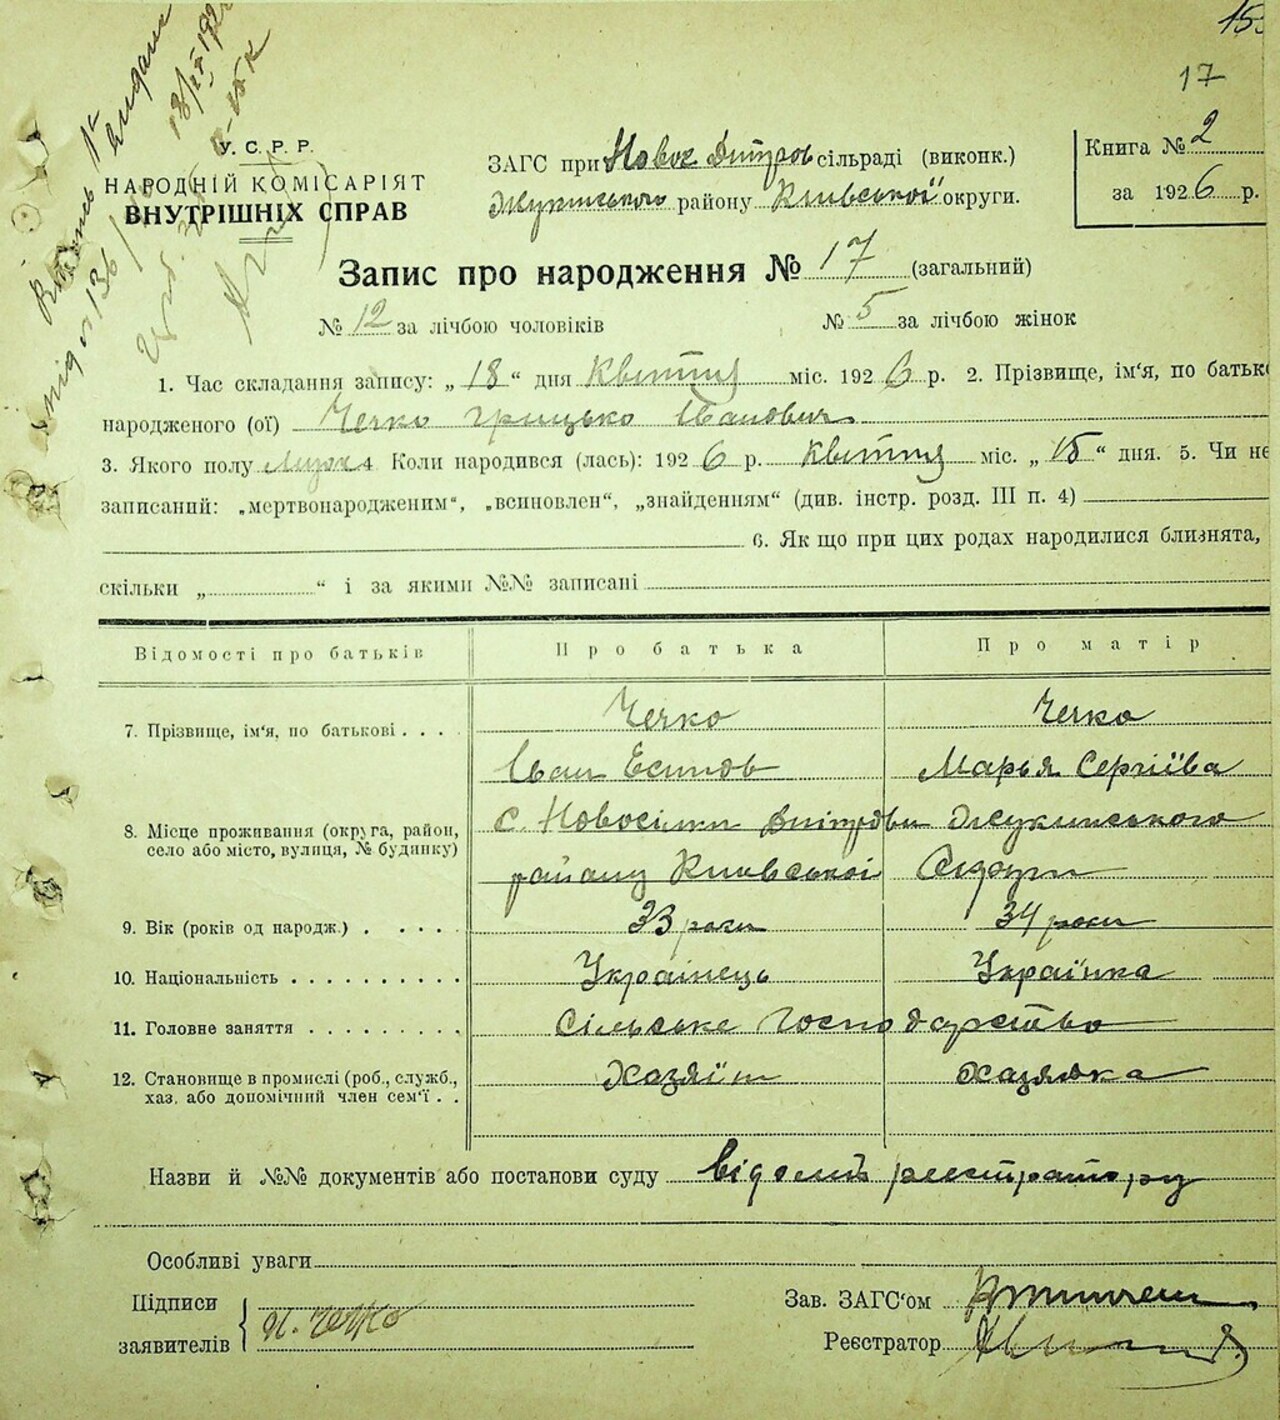 17
У. С. Р. Р.
НАРОДНІЙ КОМІСАРІЯТ
ВНУТРІШНІХ СПРАВ
ЗАГС при Новос Дмитров сільраді (виконк.)
Жукинського району Київської округи.
Книга № 2
за 1926 р.
Запис про народження № 17 (загальний)
№ 12 за лічбою чоловіків № 5 за лічбою жінок
1. Час складання запису: „ 18 “ дня Квітня міс. 1926 р. 2. Прізвище, ім‘я, по батьк
народженого (ої) Чечко Грицько Іванович
3. Якого полу Мужч 4 Коли народився (лась): 1926 р. Квітня міс. „ 15 “ дня. 5. Чи не
записаний: „мертвонародженим“, „всиновлен“, „знайденням“ (див. інстр. розд. III п. 4)
6. Як що при цих родах народилися близнята,
скільки „ “ і за якими №№ записані
Відомості про батьків Про батька Про матір
7. Прізвище, ім‘я, по батькові Чечко Чечко
Іван Есипов Марья Сергіїва
8. Місце проживання (округа, район, село або місто, вулиця, № будинку) с. Новосілки Дмітрови Жукинського
району Київської Округи
9. Вік (років од народж.) 33 роки 34 роки
10. Національність Українець Українка
11. Головне заняття Сільське Господарство
12. Становище в промислі (роб., служб., хаз. або допомічний член сем‘ї Хазяїн Хазяйка
Назви й №№ документів або постанови суду відомі реєстратору
Особливі уваги
Підписи
заявителів И. Чечко
Зав. ЗАГС‘ом
Реєстратор